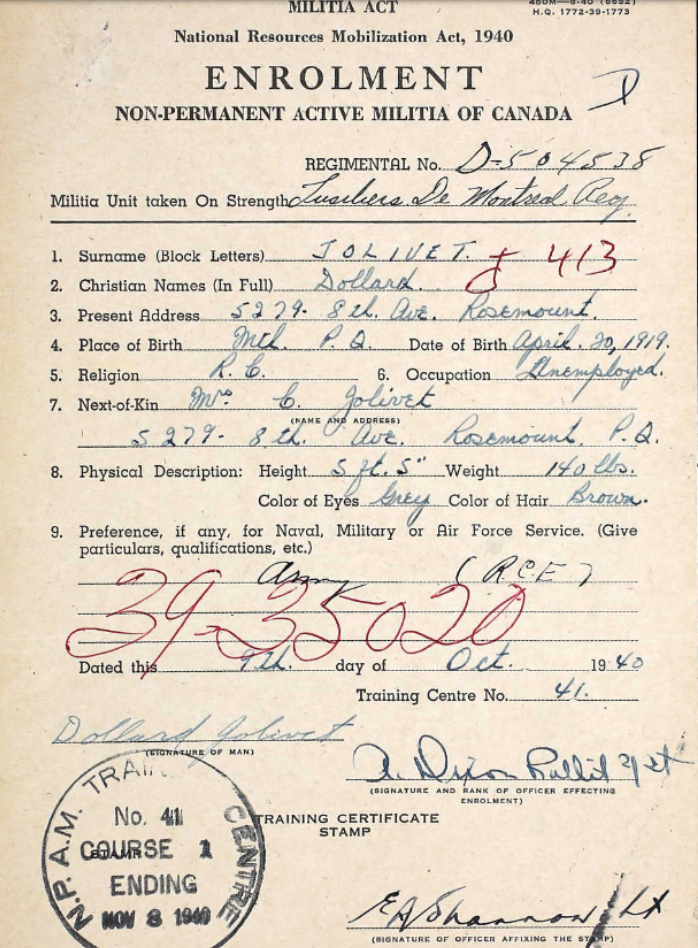 MILITIA ACT
H.Q. 1772-39-1773
National Resources Mobilization Act, 1940
ENROLMENT
NON-PERMANENT ACTIVE MILITIA OF CANADA
REGIMENTAL No. D-504538
Militia Unit taken On Strength Fusiliers De Montreal Reg.
1. Surname (Block Letters) JOLIVET. J 413
2. Christian Names (In Full) Dollard.
3. Present Address 5279- 8th. Ave. Rosemount.
4. Place of Birth Mtl. P.Q. Date of Birth April. 20, 1919.
5. Religion R.C. 6. Occupation Unemployed.
7. Next-of-Kin Mrs C. Jolivet
(NAME AND ADDRESS)
5279- 8th. Ave. Rosemount. P.Q.
8. Physical Description: Height 5 ft. 5" Weight 140 lbs.
Color of Eyes Grey Color of Hair Brown.
9. Preference, if any, for Naval, Military or Air Force Service. (Give
particulars, qualifications, etc.)
Army (R.C.E)
39-35020
Dated this 9th. day of Oct. 1940
Training Centre No. 41.
Dollard Jolivet
(SIGNATURE OF MAN)
A. Dixon
(SIGNATURE AND RANK OF OFFICER EFFECTING
ENROLMENT)
TRAINING CERTIFICATE
STAMP
N.P.A.M. TRAIN CENTRE
No. 41
COURSE 1
ENDING
NOV 8 1940
E A Shannon Lt
(SIGNATURE OF OFFICER AFFIXING THE STAMP)